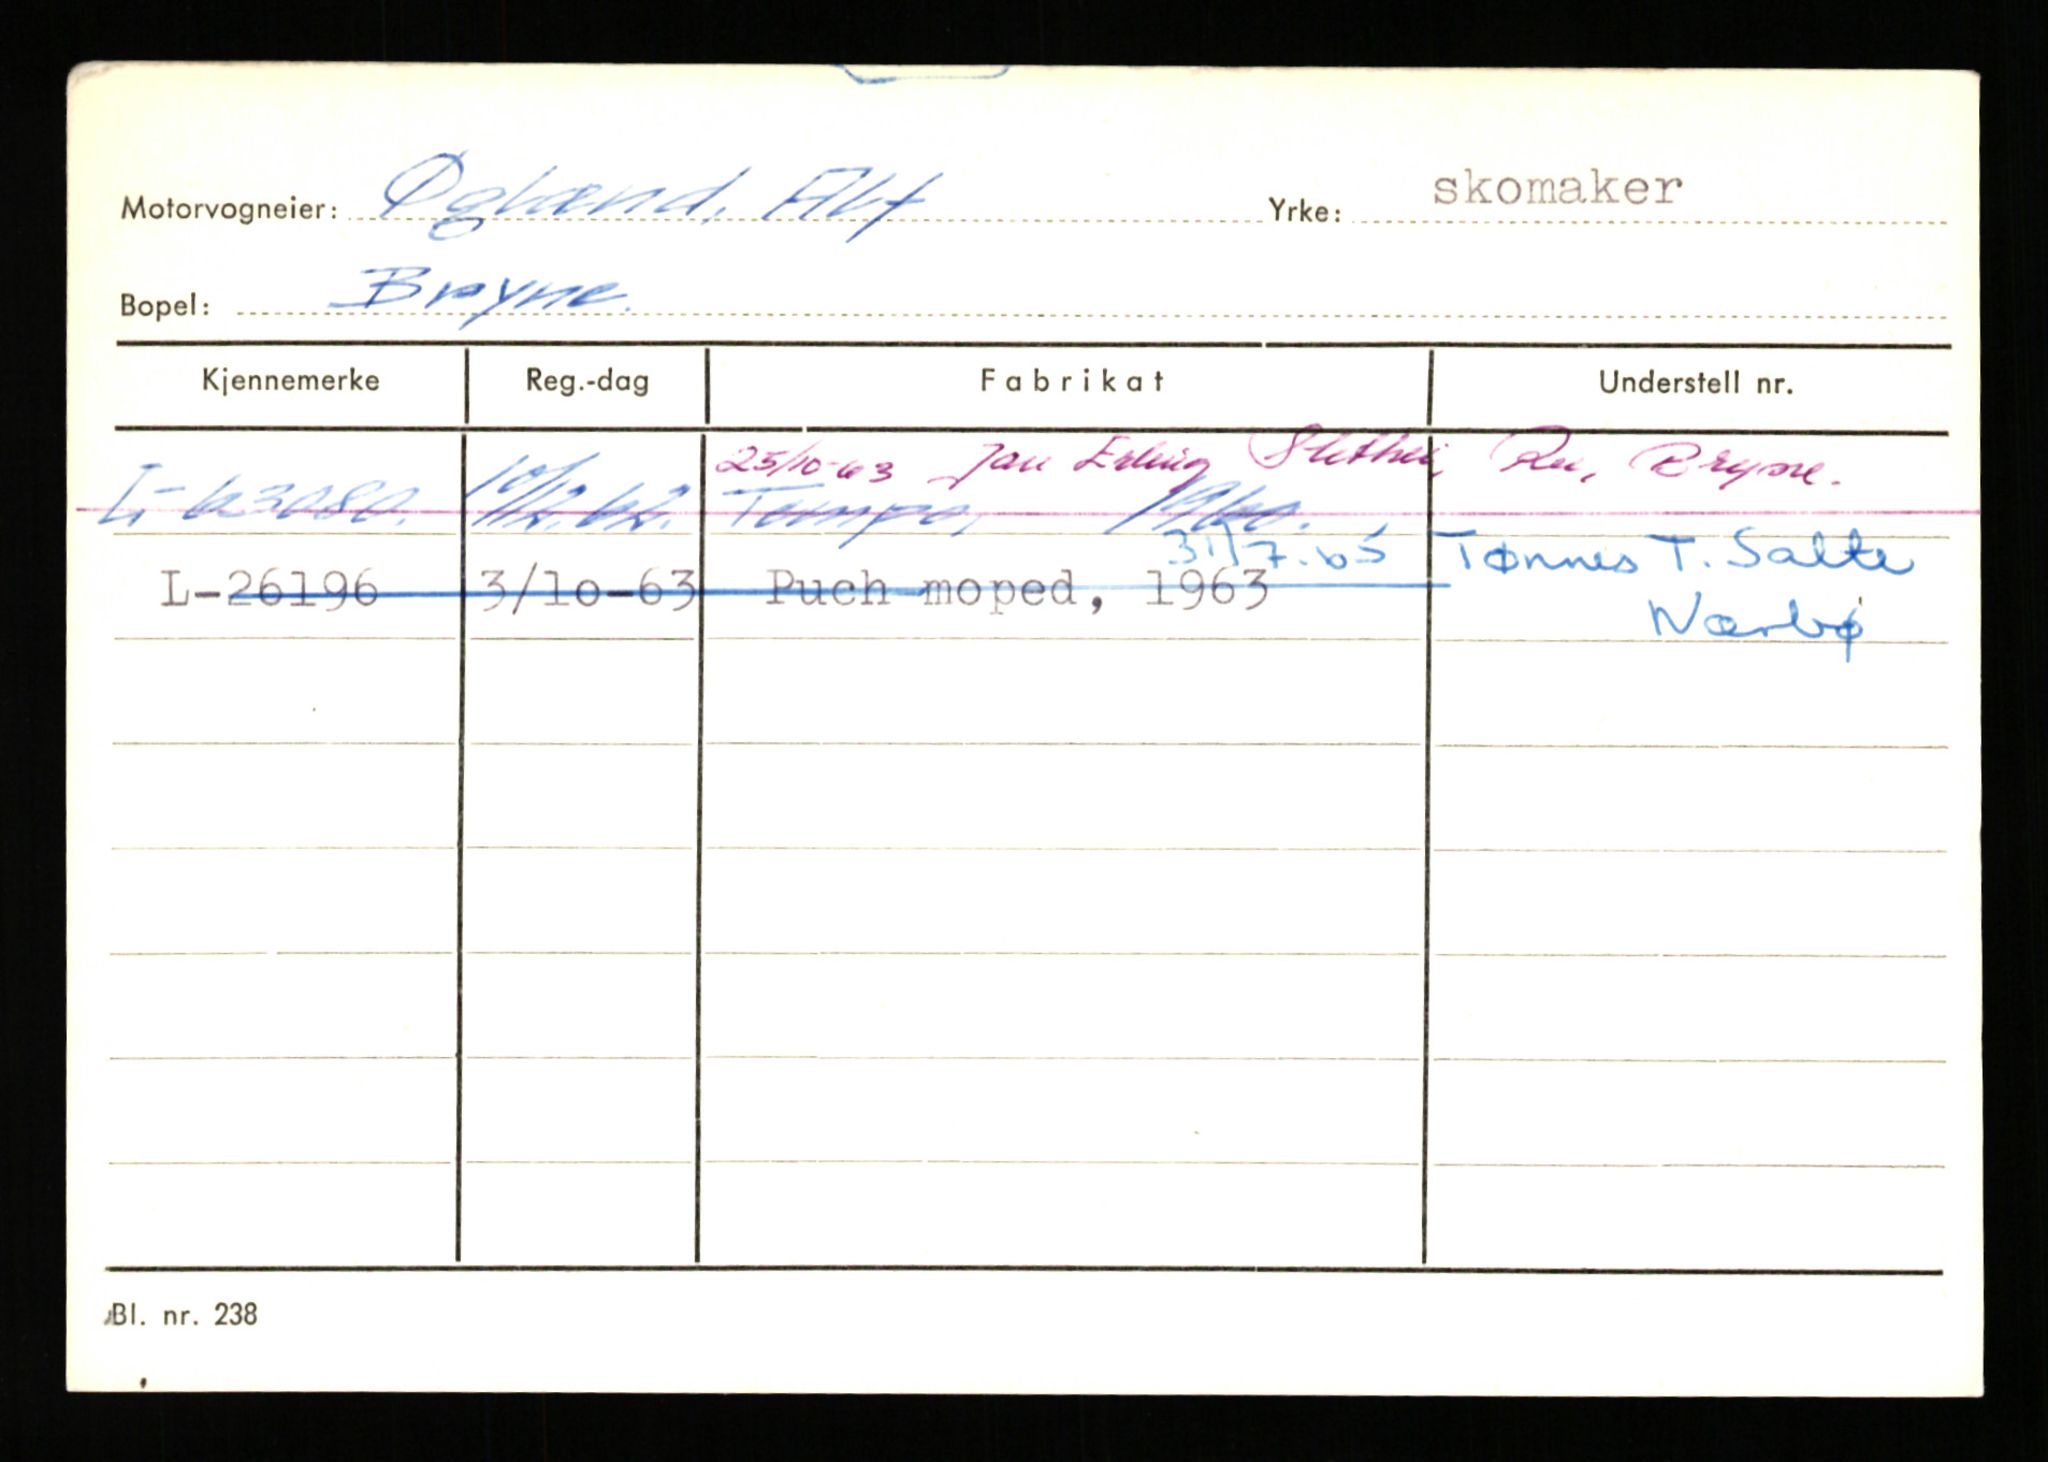 Motorvogneier: Øglænd, Alf Yrke: skomaker
Bopel: Bryne.
Kjennemerke Reg.-dag Fabrikat Understell nr.
25/10-63 Jan Erling Bryne.
L-63080. 10/12.62. Tempo, 1960.
31/7.65 Tønnes T. Salte
L-26196 3/1o-63 Puch moped, 1963
Nærbø
Bl. nr. 238